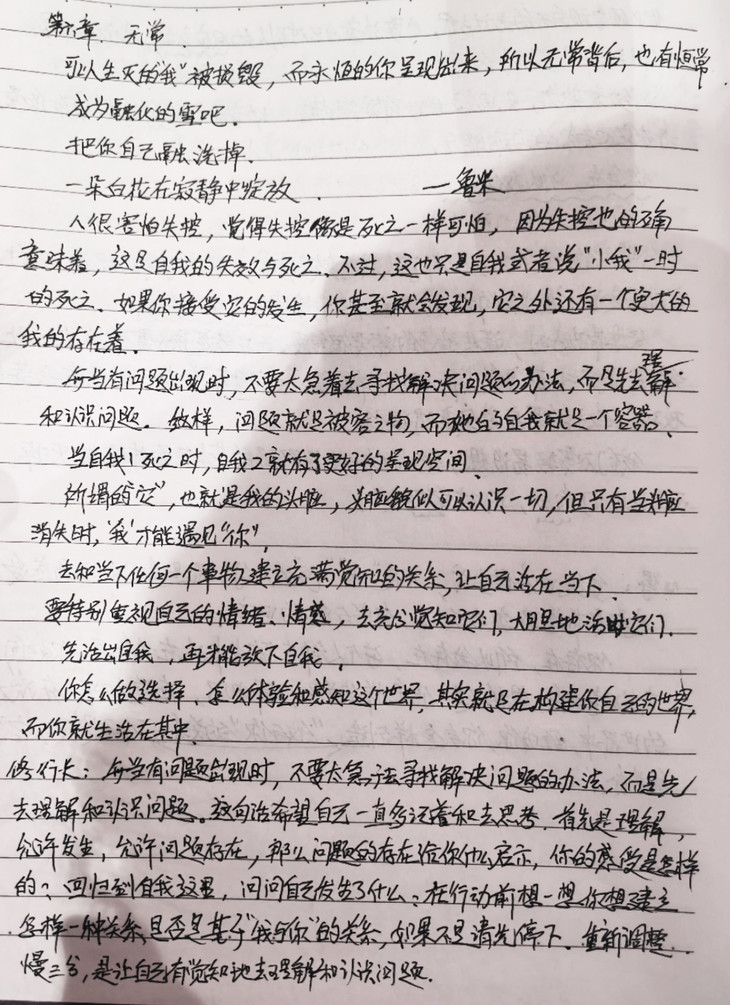 第六章 无常
可以生灭的“我”被摧毁，而永恒的你呈现出来，所以无常背后，也有恒常
成为融化的雪吧．
把你自己融洗掉．
一朵白花在寂静中绽放． —鲁米
人很害怕失控，觉得失控像是死亡一样可怕，因为失控也的确
意味着，这是自我的失效与死亡．不过，这也只是自我或者说“小我”一时
的死亡．如果你接受它的发生，你甚至就会发现，它之外还有一个更大的
我的存在着．
每当有问题出现时，不要太急着去寻找解决问题的办法，而是先去理解
和认识问题．这样，问题就是被容之物，而她的自我就是一个容器．
当自我1死亡时，自我2就有了更好的呈现空间．
所谓的“它”，也就是我的头脑，头脑貌似可以认识一切，但只有当头脑
消失时，“我”才能遇见“你”．
去和当下任何一个事物建立充满觉知的关系，让自己活在当下．
要特别重视自己的情绪、情感，去充分觉知它们，大胆地活出它们．
先活出自我，再才能放下自我．
你怎么做选择、怎么体验和感知这个世界，其实就是在构建你自己的世界，
而你就生活在其中．
修行长：每当有问题出现时，不要太急于去寻找解决问题的办法，而是先
去理解和认识问题。这句话希望自己一直多记着和去思考．首先是理解，
允许发生，允许问题存在，那么问题的存在给你什么启示，你的感受是怎样
的？回归到自我这里，问问自己发生了什么？在行动前想一想你想建立
怎样一种关系，是否是基于“我与你”的关系，如果不是请先停下．重新调整．
慢三分，是让自己有觉知地去理解和认识问题．